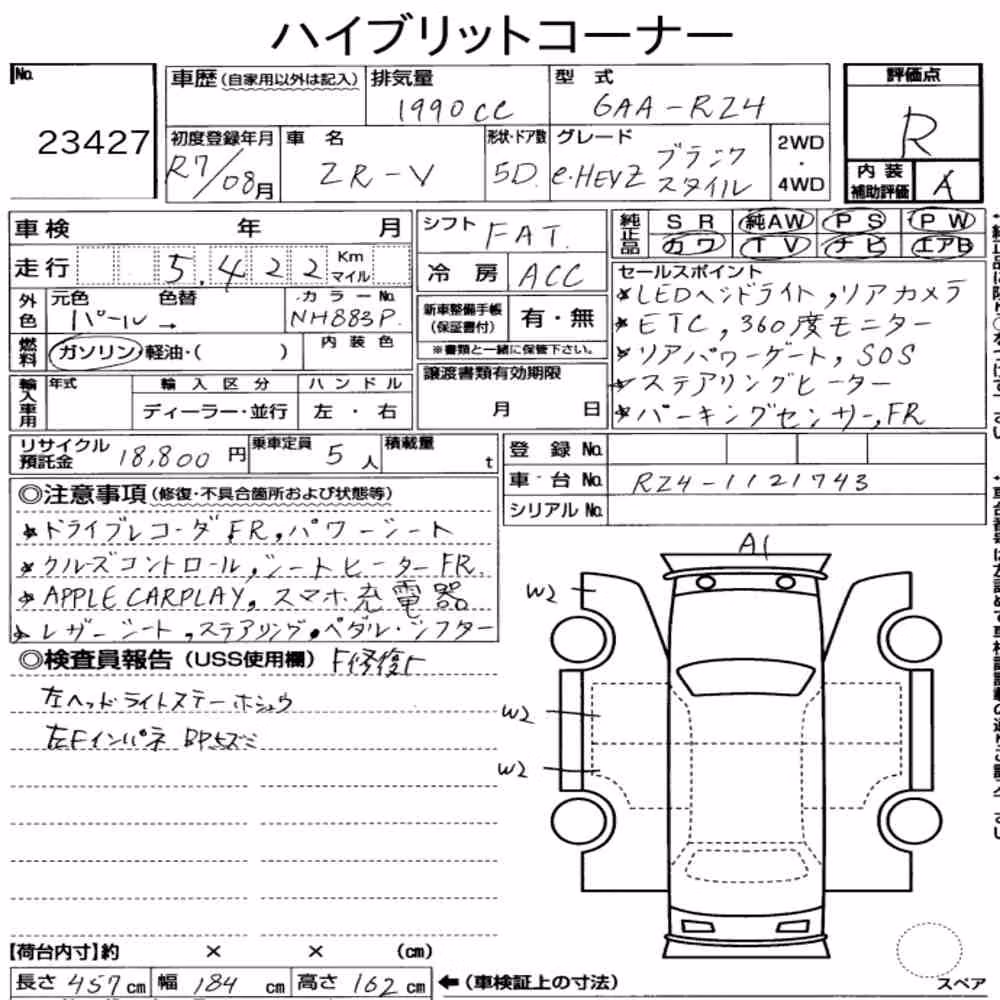 ハイブリットコーナー
No.
23427
車歴(自家用以外は記入)
排気量
1990cc
型 式
6AA-RZ4
初度登録年月
R7/08月
車 名
ZR-V
形状・ドア数
5D
グレード
e:HEVZ ブラック
スタイル
2WD
・
4WD
評価点
R
内装
補助評価
A
車検 年 月
走行 5.422 Km
マイル
外色
元色 色替
パール →
カラーNo.
NH883P
燃料
ガソリン・軽油・( )
内装色
輸入車用
年式
輸入区分
ディーラー・並行
ハンドル
左・右
シフト
FAT
冷房
ACC
新車整備手帳
(保証書付)
有・無
※書類と一緒に保管下さい。
譲渡書類有効期限
月 日
純正品
SR 純AW PS PW
カワ TV ナビ エアB
セールスポイント
★LEDヘッドライト,リアカメラ
★ETC,360度モニター
★リアパワーゲート,SOS
★ステアリングヒーター
★パーキングセンサー,FR
リサイクル
預託金
18,800円
乗車定員
5人
積載量
t
登録No.
車台No.
RZ4-1121743
シリアルNo.
◎注意事項(修復・不具合箇所および状態等)
★ドライブレコーダFR,パワーシート
★クルーズコントロール,シートヒーターFR
★APPLE CARPLAY,スマホ充電器
★レザーシート,ステアリング,ペダル・シフター
◎検査員報告(USS使用欄) F修復F
左ヘッドライトステーホシュウ
左Fインパネ
A1
W2
W2
W2
【荷台内寸】約 × × (cm)
長さ 457cm 幅 184cm 高さ 162cm
←(車検証上の寸法)
スペア